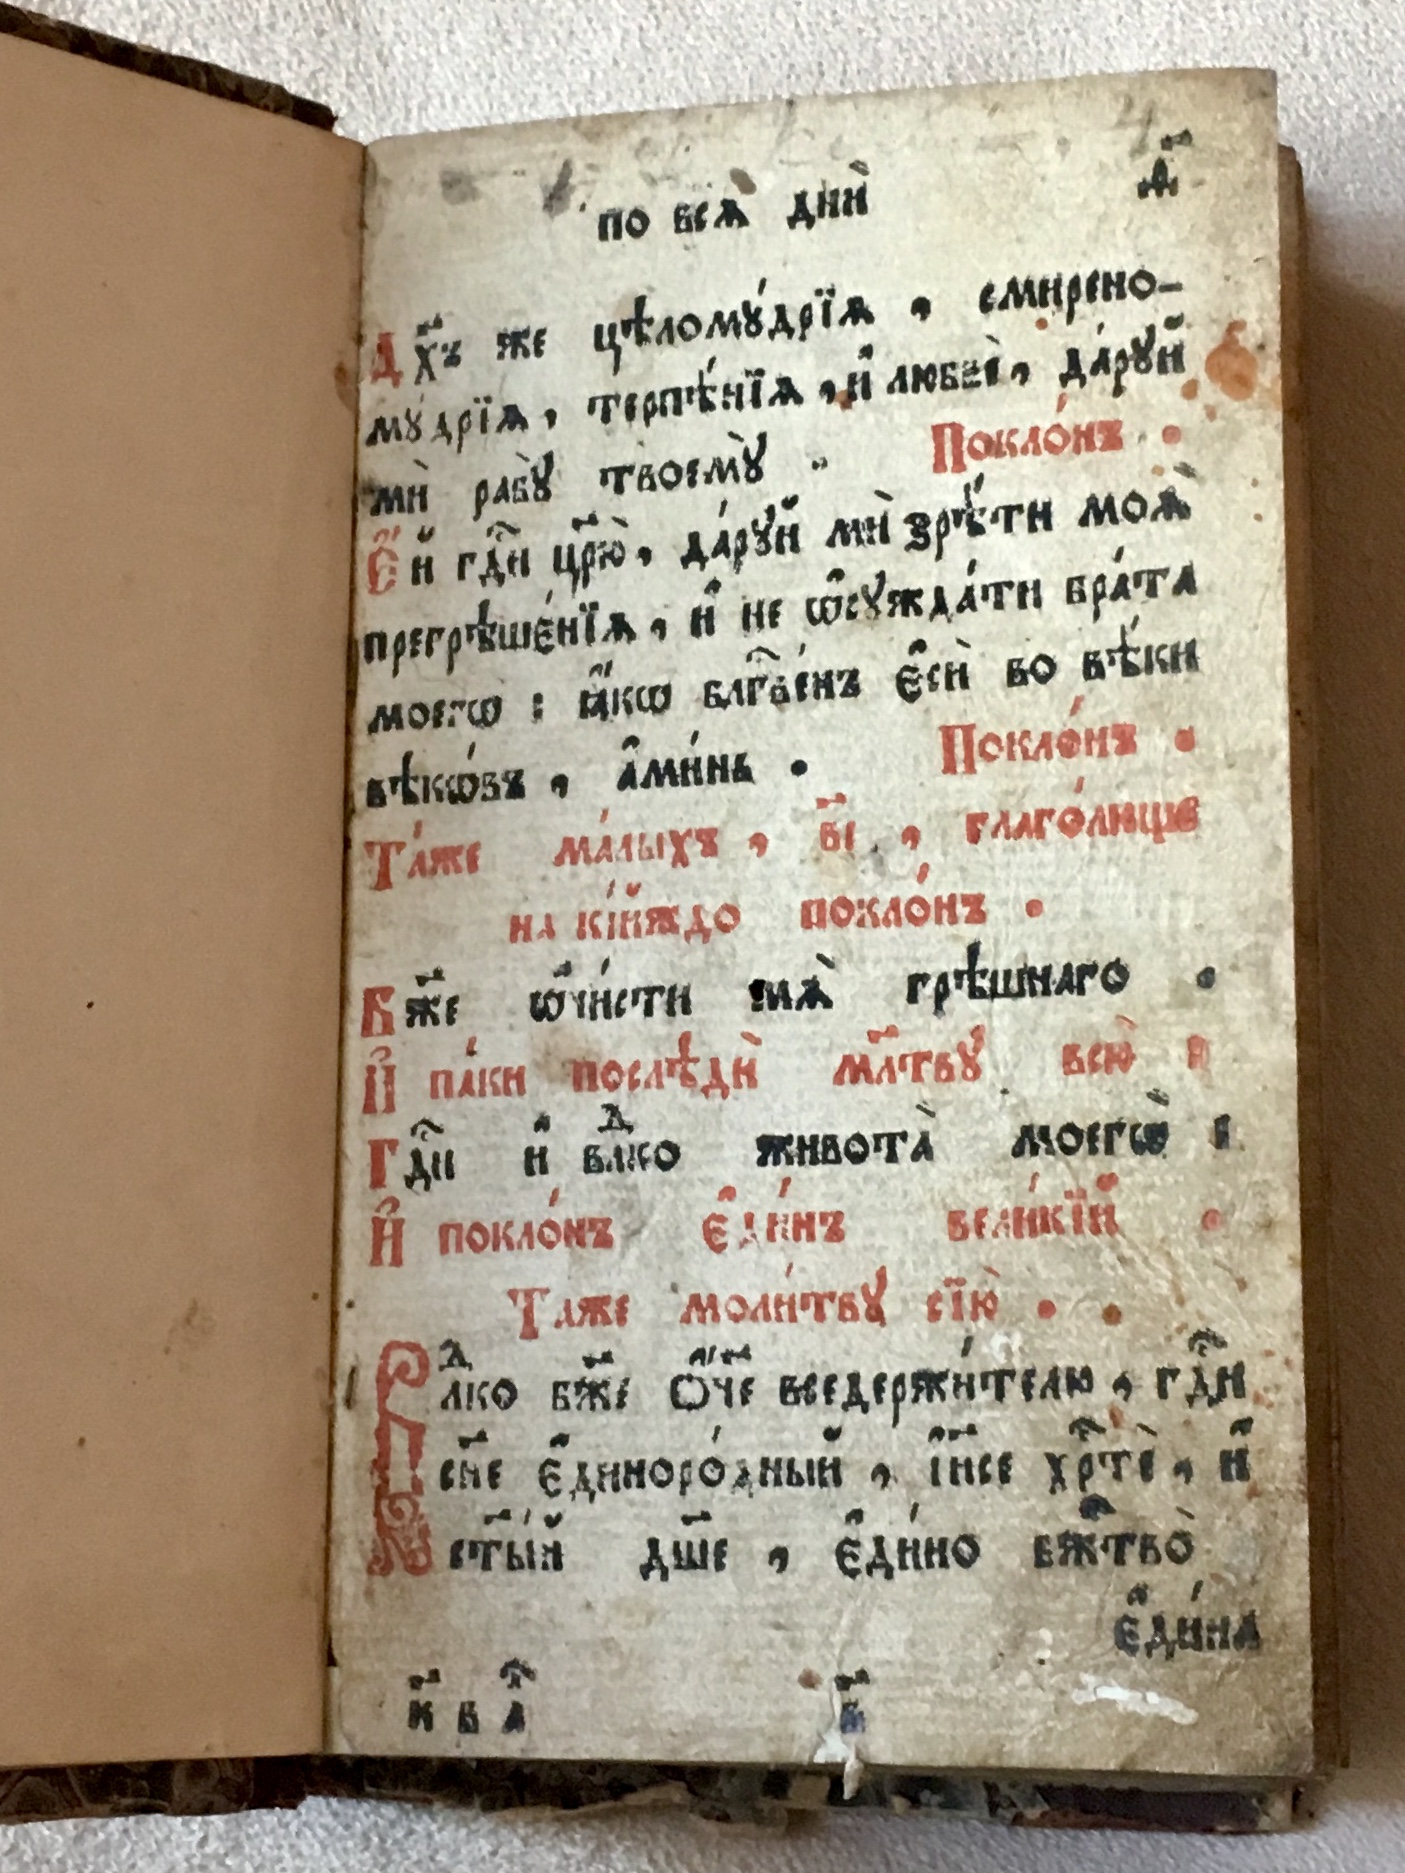 по всѧ̀ днѝ д҃
Дх҃ъ же цѣломꙋ́дрїѧ , смирено-
мꙋ́дрїѧ , терпѣ́нїѧ , и҆ любвѐ , да́рꙋй
мѝ рабꙋ̀ твоемꙋ̀ . Покло́нъ .
Е҆́й гдⷭ҇и цр҃ю̀ , да́рꙋй мѝ зрѣ́ти моѧ̀
прегрѣше́нїѧ , и҆ не ѡ҆сꙋжда́ти бра́та
моегѡ̀ : ꙗ҆́кѡ блг҇ве́нъ є҆сѝ во вѣ́ки
вѣкѡ́въ , а҆ми́нь . Покло́нъ .
Та́же ма́лыхъ , в҃і , глаго́люще
на кі́йждо покло́нъ .
Бж҃е ѡ҆чи́сти мѧ̀ грѣ́шнаго .
И҆ па́ки послѣдѝ мл҃твꙋ всю̀ :
Гдⷭ҇и и҆ влⷣко живота̀ моегѡ̀ :
И҆ покло́нъ є҆ди́нъ вели́кїй .
Таже моли́твꙋ сїю̀ .
влⷣко бж҃е ѻ҆́ч҃е вседержи́телю , гдⷭ҇и
сн҃е є҆диноро́дный , і҆и҃се хрⷭ҇тѐ , и҆
ст҃ы́й дш҃е , є҆ди́но бжⷭ҇тво̀
є҆ди́на
в҃